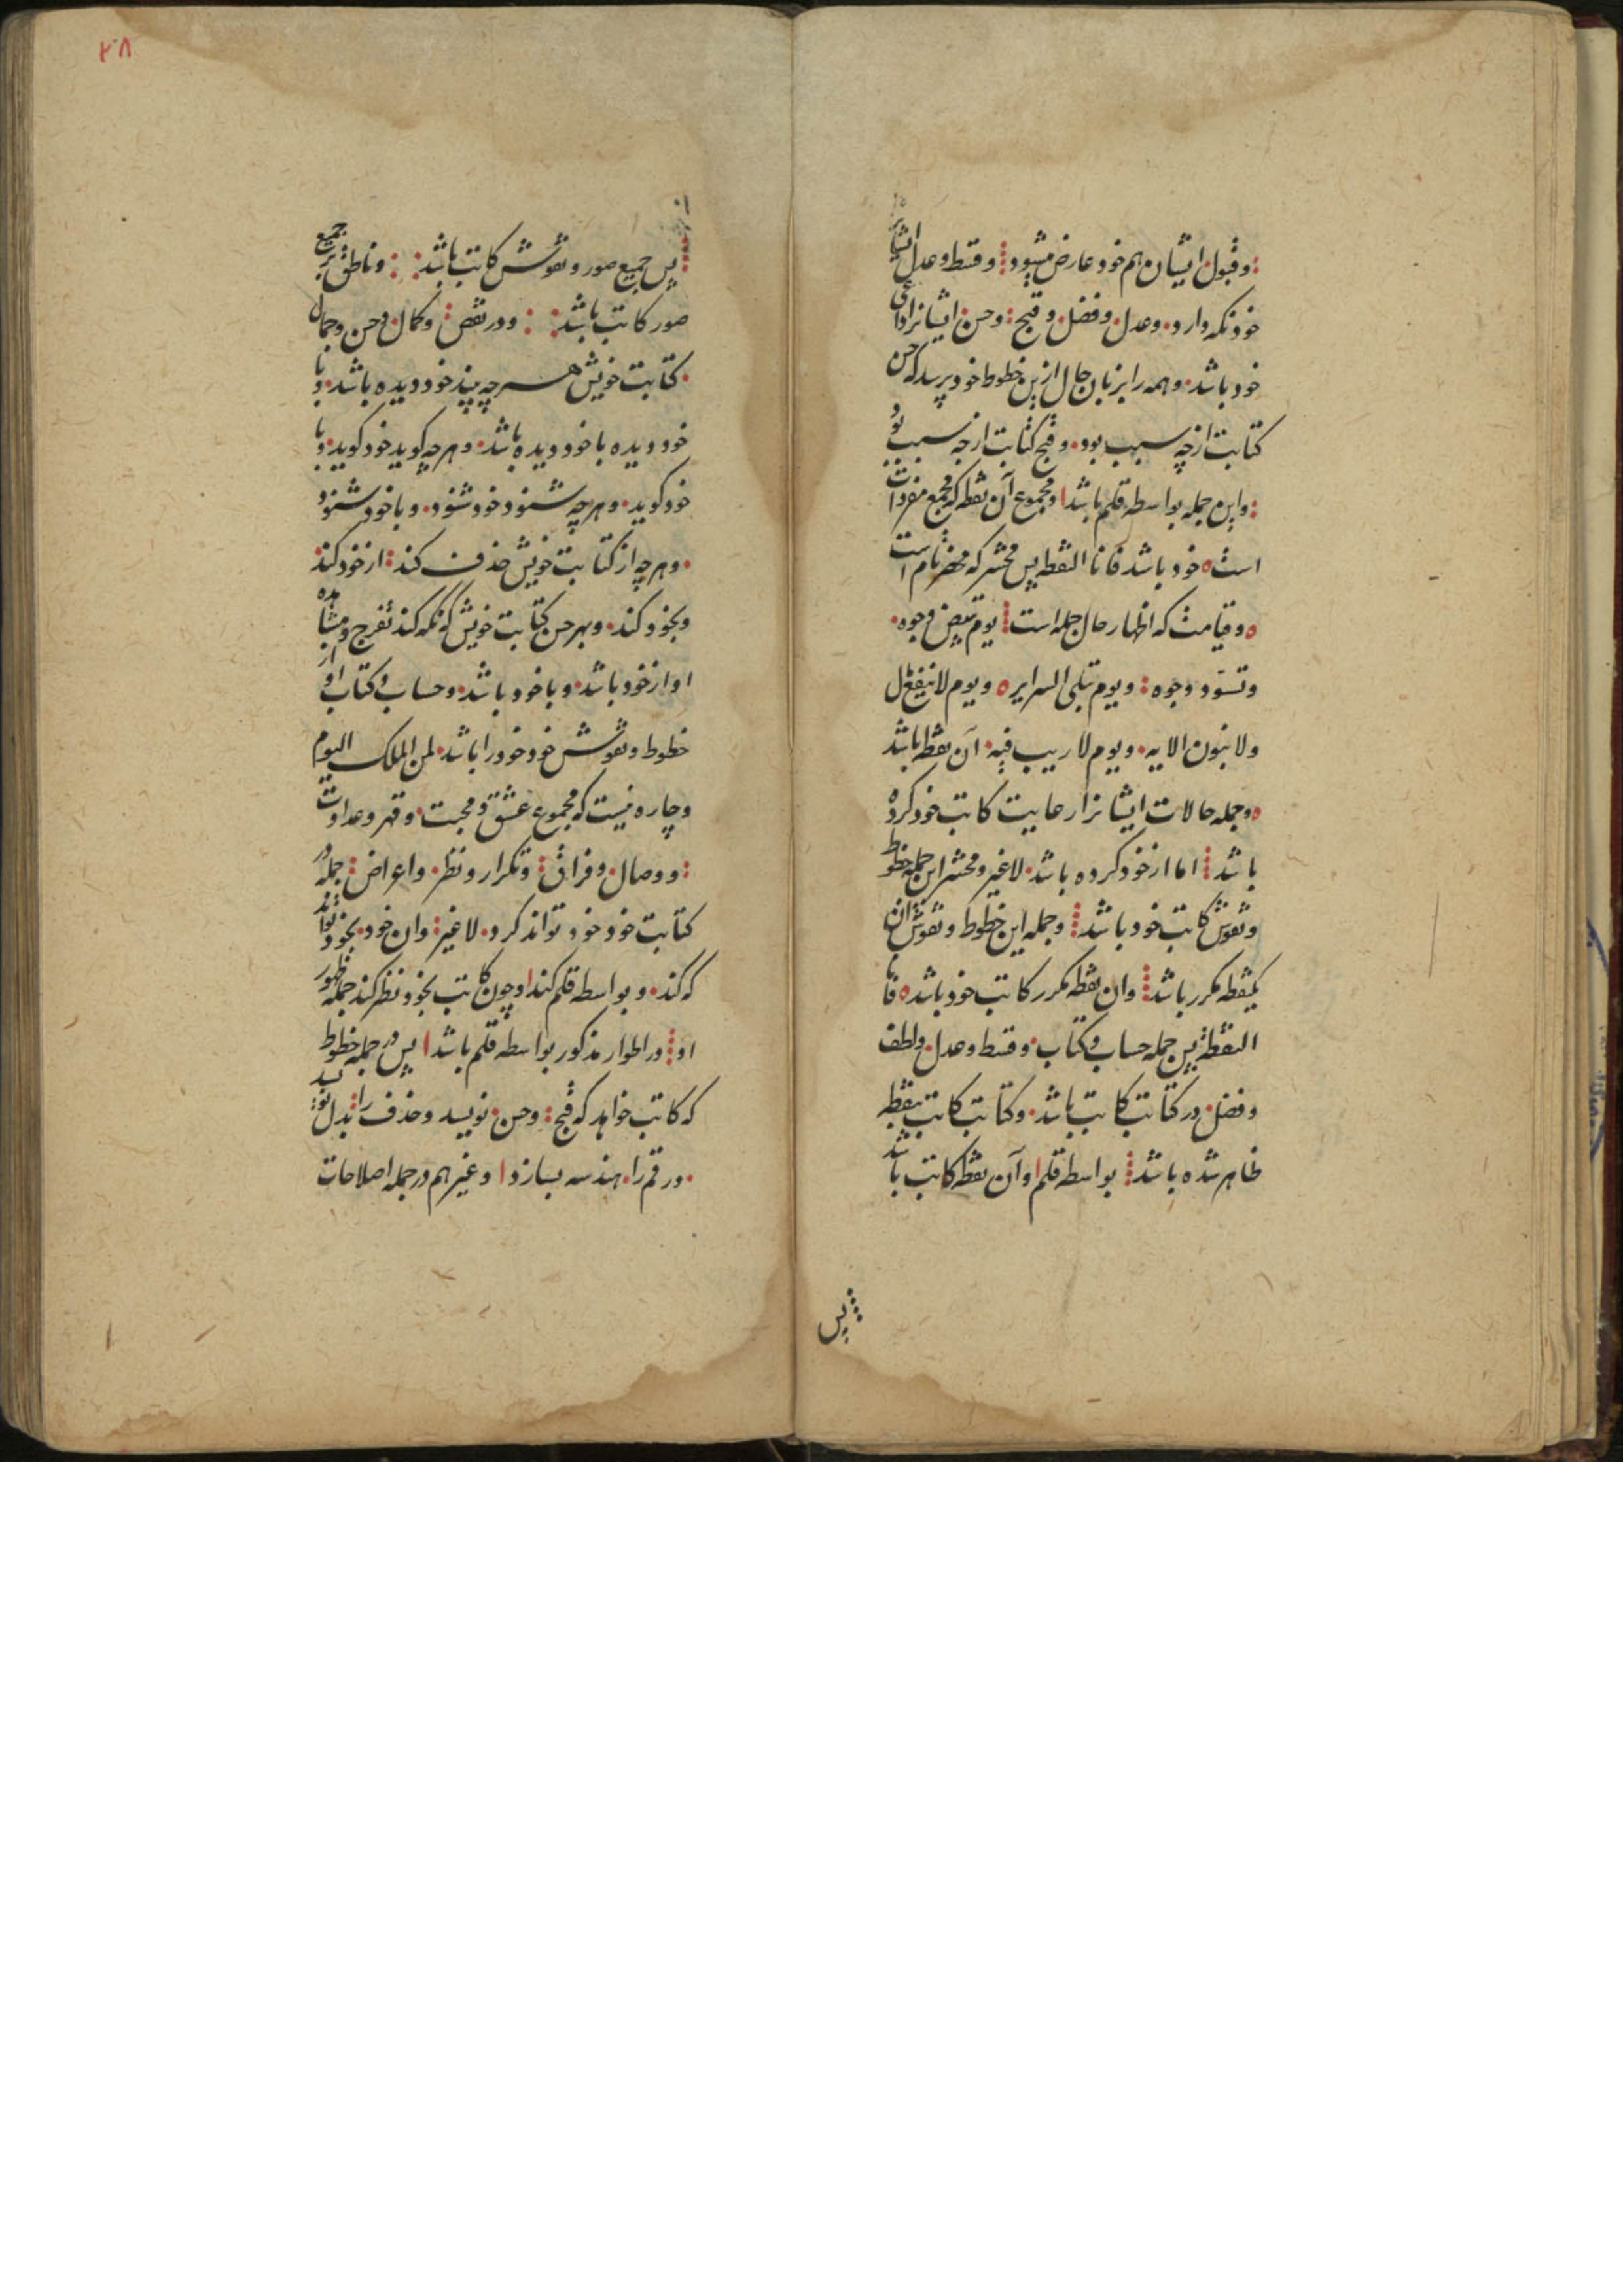 وقبول ایشان هم خود عارض میشود وقسط وعدل ایشان
خود نکه دارد وعدل وفضل وقبح وحسن ایشانرا داعی
خود باشد وهمه را بزبان حال ازین خطوط خود پرسد که حسن
کتابت از چه سبب بود وقبح کتابت از چه سبب بود
واین جمله بواسطه قلم باشد ومجموع آن نقطه که مجمع مفردات
است خود باشد فانا النقطه پس محشر که محضر تام است
وقیامت که اظهار حال جمله است یوم تبیض وجوه
وتسود وجوه ویوم تبلی السرایر ویوم لا ینفع مال
ولا بنون الایه ویوم لا ریب فیه آن نقطه باشد
وجمله حالات ایشانرا رعایت کاتب خود کرده
باشد اما از خود کرده باشد لاغیر ومحشر این جمله خطوط
ونقوش کاتب خود باشد وجمله این خطوط ونقوش آن
یکنقطه مکرر باشد وان نقطه مکرر کاتب خود باشد فانا
النقطه پس جمله حساب وکتاب وقسط وعدل ولطف
وفضل در کتابت کاتب باشد وکتابت کاتب بنقطه
ظاهر شده باشد بواسطه قلم وآن نقطه کاتب باشد
پس
۲۸
پس جمیع صور ونقوش کاتب باشد وناطق بر جمیع
صور کاتب باشد ودر نقص وکمال وحسن وجمال
کتابت خویش هر چه بیند خود دیده باشد وبا
خود دیده با خود دیده باشد وهر چه کوید خود کوید وبا
خود کوید وهر چه شنود خود شنود وبا خود شنود
وهر چه از کتابت خویش حذف کند از خود کند
وبخود کند وبهر حسن کتابت خویش که نکه کند تفرج ومشاهده
او از خود باشد وبا خود باشد وحساب وکتاب او از
خطوط ونقوش خود خود را باشد لمن الملک الیوم
وچاره نیست که مجموع عشق ومحبت وقهر وعداوت
ووصال وفراق وتکرار ونظر واعراض جمله در
کتابت خود خود تواند کرد لاغیر وان خود بخود تواند
که کند وبواسطه قلم کند وچون کاتب بخود نظر کند جمله ظهور
او در اطوار مذکور بواسطه قلم باشد پس در جمله خطوط
که کاتب خواهد که قبح وحسن نویسد وحذف را بدل نویسد
ورقم را هندسه بسازد وغیر هم در جمله اصلاحات